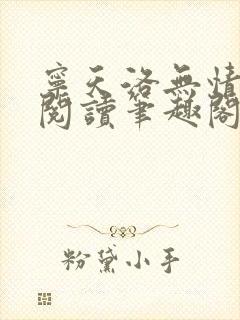 寧天洛無情
閱讀筆趣閣
粉黛小手